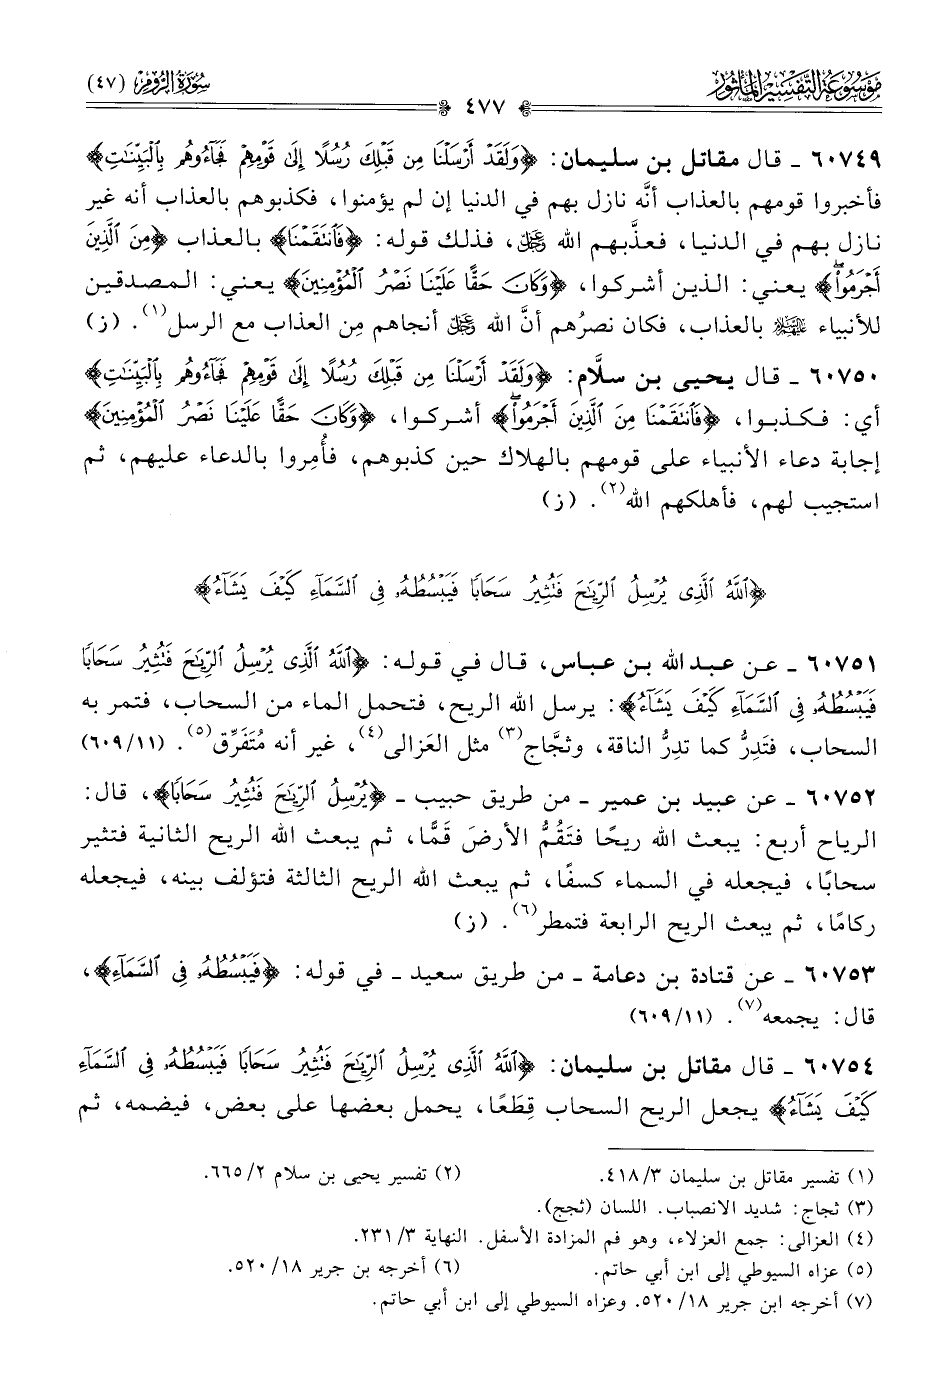 موسوعة التفسير المأثور
سورة الروم (٤٧)
٤٧٧
٦٠٧٤٩ ـ قال مقاتل بن سليمان: ﴿وَلَقَدْ أَرْسَلْنَا مِن قَبْلِكَ رُسُلًا إِلَىٰ قَوْمِهِمْ فَجَآءُوهُم بِٱلْبَيِّنَٰتِ﴾
فأخبروا قومهم بالعذاب أنَّه نازل بهم في الدنيا إن لم يؤمنوا، فكذبوهم بالعذاب أنه غير
نازل بهم في الدنيا، فعذَّبهم الله ﷿، فذلك قوله: ﴿فَٱنتَقَمْنَا﴾ بالعذاب ﴿مِنَ ٱلَّذِينَ
أَجْرَمُوا۟ۖ﴾ يعني: الذين أشركوا، ﴿وَكَانَ حَقًّا عَلَيْنَا نَصْرُ ٱلْمُؤْمِنِينَ﴾ يعني: المصدقين
للأنبياء ﵈ بالعذاب، فكان نصرُهم أنَّ الله ﷿ أنجاهم مِن العذاب مع الرسل(١). (ز)
٦٠٧٥٠ ـ قال يحيى بن سلَّام: ﴿وَلَقَدْ أَرْسَلْنَا مِن قَبْلِكَ رُسُلًا إِلَىٰ قَوْمِهِمْ فَجَآءُوهُم بِٱلْبَيِّنَٰتِ﴾
أي: فكذبوا، ﴿فَٱنتَقَمْنَا مِنَ ٱلَّذِينَ أَجْرَمُوا۟ۖ﴾ أشركوا، ﴿وَكَانَ حَقًّا عَلَيْنَا نَصْرُ ٱلْمُؤْمِنِينَ﴾
إجابة دعاء الأنبياء على قومهم بالهلاك حين كذبوهم، فأُمِروا بالدعاء عليهم، ثم
استجيب لهم، فأهلكهم الله(٢). (ز)
﴿ٱللَّهُ ٱلَّذِى يُرْسِلُ ٱلرِّيَٰحَ فَتُثِيرُ سَحَابًا فَيَبْسُطُهُۥ فِى ٱلسَّمَآءِ كَيْفَ يَشَآءُ﴾
٦٠٧٥١ ـ عن عبد الله بن عباس، قال في قوله: ﴿ٱللَّهُ ٱلَّذِى يُرْسِلُ ٱلرِّيَٰحَ فَتُثِيرُ سَحَابًا
فَيَبْسُطُهُۥ فِى ٱلسَّمَآءِ كَيْفَ يَشَآءُ﴾: يرسل الله الريح، فتحمل الماء من السحاب، فتمر به
السحاب، فتَدِرُّ كما تدِرُّ الناقة، وثجَّاج(٣) مثل العَزالى(٤)، غير أنه مُتَفَرِّق(٥). (٦٠٩/١١)
٦٠٧٥٢ ـ عن عبيد بن عمير ـ من طريق حبيب ـ ﴿يُرْسِلُ ٱلرِّيَٰحَ فَتُثِيرُ سَحَابًا﴾، قال:
الرياح أربع: يبعث الله ريحًا فتَقُمُّ الأرضَ قَمًّا، ثم يبعث الله الريح الثانية فتثير
سحابًا، فيجعله في السماء كسفًا، ثم يبعث الله الريح الثالثة فتؤلف بينه، فيجعله
ركامًا، ثم يبعث الريح الرابعة فتمطر(٦). (ز)
٦٠٧٥٣ ـ عن قتادة بن دعامة ـ من طريق سعيد ـ في قوله: ﴿فَيَبْسُطُهُۥ فِى ٱلسَّمَآءِ﴾،
قال: يجمعه(٧). (٦٠٩/١١)
٦٠٧٥٤ ـ قال مقاتل بن سليمان: ﴿ٱللَّهُ ٱلَّذِى يُرْسِلُ ٱلرِّيَٰحَ فَتُثِيرُ سَحَابًا فَيَبْسُطُهُۥ فِى ٱلسَّمَآءِ
كَيْفَ يَشَآءُ﴾ يجعل الريح السحاب قِطَعًا، يحمل بعضها على بعض، فيضمه، ثم
(١) تفسير مقاتل بن سليمان ٤١٨/٣. (٢) تفسير يحيى بن سلام ٦٦٥/٢.
(٣) ثجاج: شديد الانصباب. اللسان (ثجج).
(٤) العزالى: جمع العزلاء، وهو فم المزادة الأسفل. النهاية ٢٣١/٣.
(٥) عزاه السيوطي إلى ابن أبي حاتم. (٦) أخرجه بن جرير ٥٢٠/١٨.
(٧) أخرجه ابن جرير ٥٢٠/١٨. وعزاه السيوطي إلى ابن أبي حاتم.